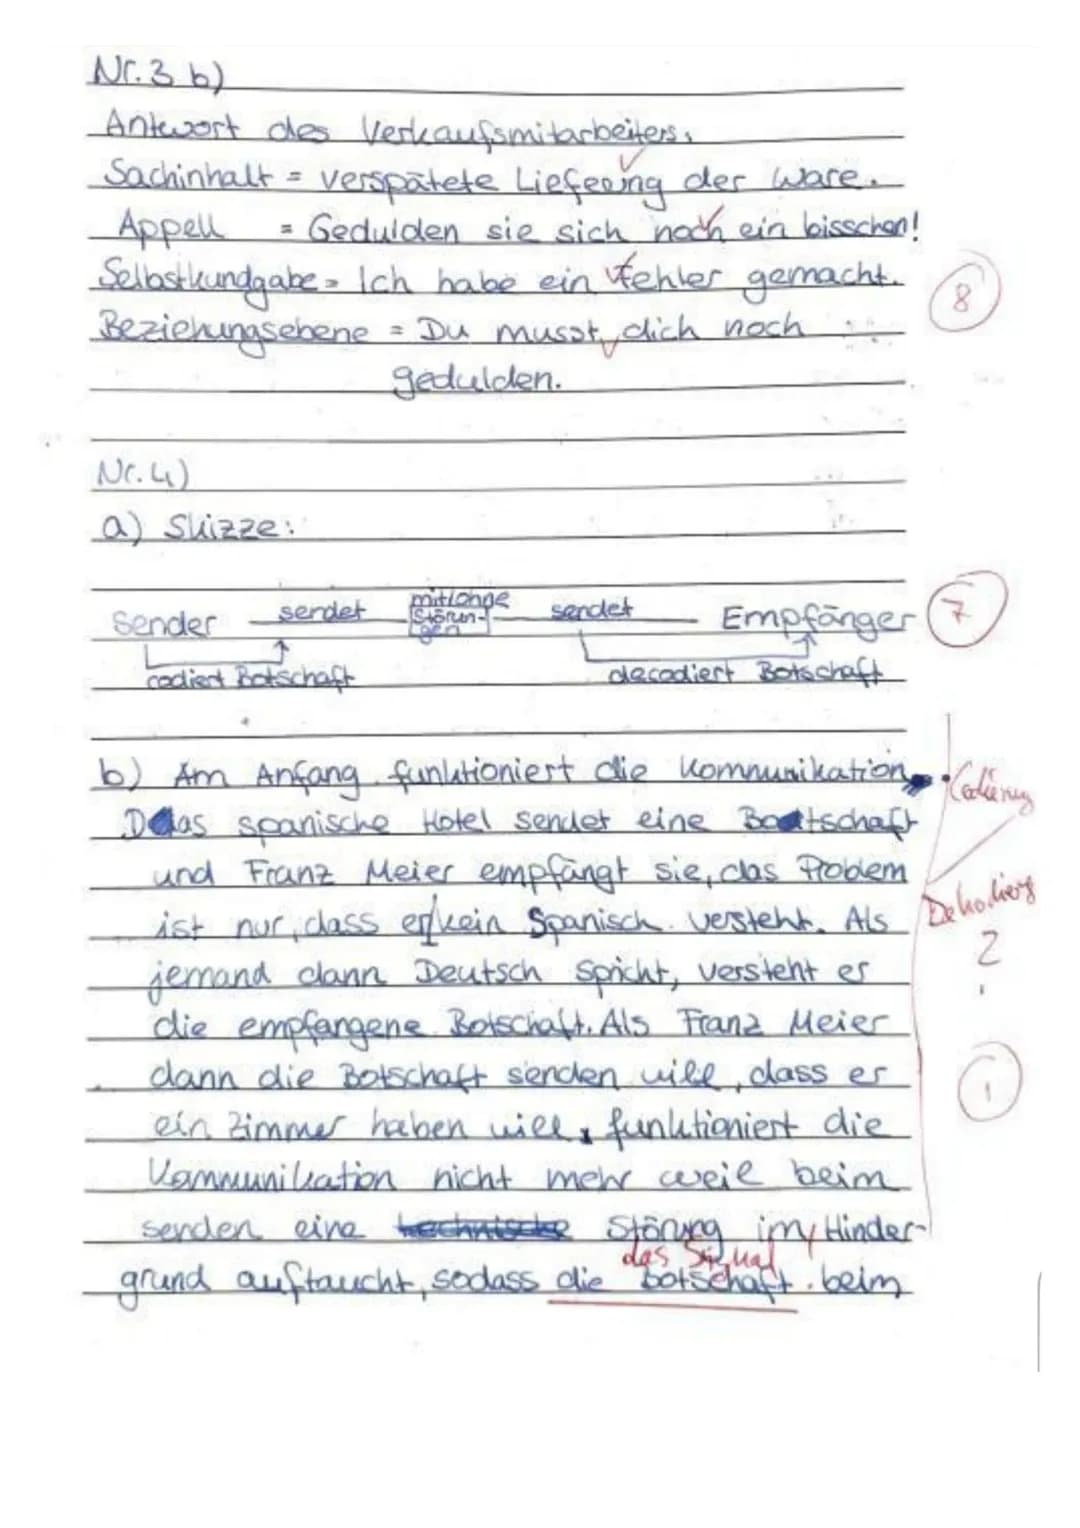 Nr. 3 b)
Antwort des Verkaufsmitarbeiters.
Sachinhalt = verspätete Lieferung der Ware.
Appell = Gedulden sie sich noch ein bisschen!
Selbstkundgabe = Ich habe ein Fehler gemacht.
8
Beziehungsebene = Du musst dich noch
gedulden.
Nr. 4)
a) Skizze:
Sender sendet mitlonge Störun-gen sendet Empfänger
7
codiert Botschaft decodiert Botschaft
b) Am Anfang funktioniert die Kommunikation.
Codierung
Das spanische Hotel sendet eine Botschaft
und Franz Meier empfängt sie, das Problem
Dekodierg
ist nur, dass er kein Spanisch versteht. Als
?
jemand dann Deutsch spricht, versteht er
die empfangene Botschaft. Als Franz Meier
dann die Botschaft senden will, dass er
1
ein Zimmer haben will, funktioniert die
Kommunikation nicht mehr weil beim
senden eine technische Störung im Hinder-
das Signal
grund auftaucht, sodass die botschaft beim